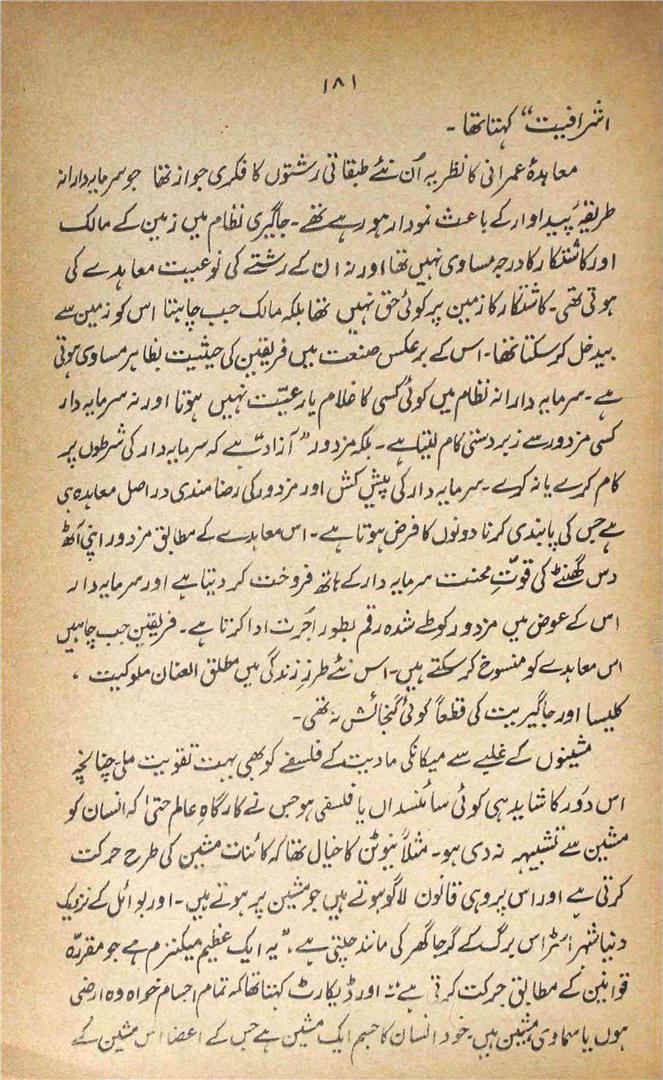 ۱۸۱
اشرافیت“ کہتا تھا ۔
معاہدۂ عمرانی کا نظریہ اُن نئے طبقاتی رشتوں کا فکری جواز تھا جو سرمایہ دارانہ
طریقۂ پیداوار کے باعث نمودار ہو رہے تھے ۔ جاگیری نظام میں زمین کے مالک
اور کاشتکار کا درجہ مساوی نہیں تھا اور نہ ان کے رشتے کی نوعیت معاہدے کی
ہوتی تھی ۔ کاشتکار کا زمین پر کوئی حق نہیں تھا بلکہ مالک جب چاہتا اس کو زمین سے
بیدخل کر سکتا تھا ۔ اس کے برعکس صنعت میں فریقین کی حیثیت بظاہر مساوی ہوتی
ہے ۔ سرمایہ دارانہ نظام میں کوئی کسی کا غلام یا رعیّت نہیں ہوتا اور نہ سرمایہ دار
کسی مزدور سے زبردستی کام لیتا ہے ۔ بلکہ مزدور ”آزاد“ ہے کہ سرمایہ دار کی شرطوں پر
کام کرے یا نہ کرے ۔ سرمایہ دار کی پیش کش اور مزدور کی رضامندی دراصل معاہدہ ہی
ہے جس کی پابندی کرنا دونوں کا فرض ہوتا ہے ۔ اس معاہدے کے مطابق مزدور اپنی آٹھ
دس گھنٹے کی قوّتِ محنت سرمایہ دار کے ہاتھ فروخت کر دیتا ہے اور سرمایہ دار
اس کے عوض میں مزدور کو طے شدہ رقم بطور اُجرت ادا کرتا ہے ۔ فریقین جب چاہیں
اس معاہدے کو منسوخ کر سکتے ہیں ۔ اس نئے طرزِ زندگی میں مطلق العنان ملوکیت ،
کلیسا اور جاگیریت کی قطعاً کوئی گنجائش نہ تھی ۔
مشینوں کے غلبے سے میکانکی مادیت کے فلسفے کو بھی بہت تقویت ملی چنانچہ
اس دَور کا شاید ہی کوئی سائنسداں یا فلسفی ہو جس نے کارگاہِ عالم حتیٰ کہ انسان کو
مشین سے تشبیہہ نہ دی ہو ۔ مثلاً نیوٹن کا خیال تھا کہ کائنات مشین کی طرح حرکت
کرتی ہے اور اس پر وہی قانون لاگو ہوتے ہیں جو مشین پر ہوتے ہیں ۔ اور بوائل کے نزدیک
دنیا شہر اسٹراس برگ کے گرجا گھر کی مانند چلتی ہے ۔ ”یہ ایک عظیم میکنزم ہے جو مقررہ
قوانین کے مطابق حرکت کرتی ہے“ اور ڈیکارٹ کہتا تھا کہ تمام اجسام خواہ وہ ارضی
ہوں یا سماوی مشین ہیں ۔ خود انسان کا جسم ایک مشین ہے جس کے اعضا اس مشین کے